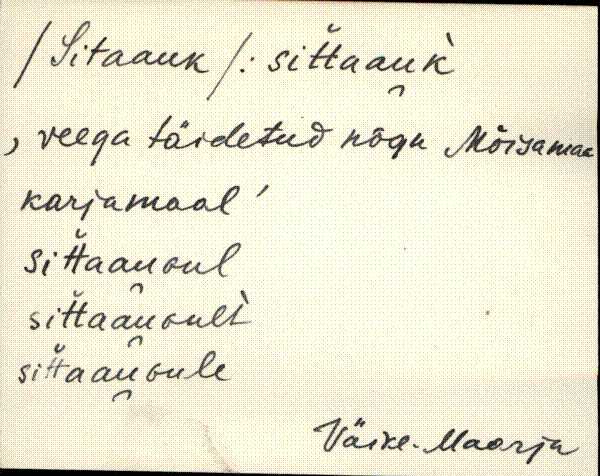 /Sitaauk/: sit̆taau̯k̀
, veega täidetud nõgu Mõisamaa
karjamaal'
sit̆taau̯oul
sit̆taau̯oult̀
sit̆taau̯oule
Väike-Maarja